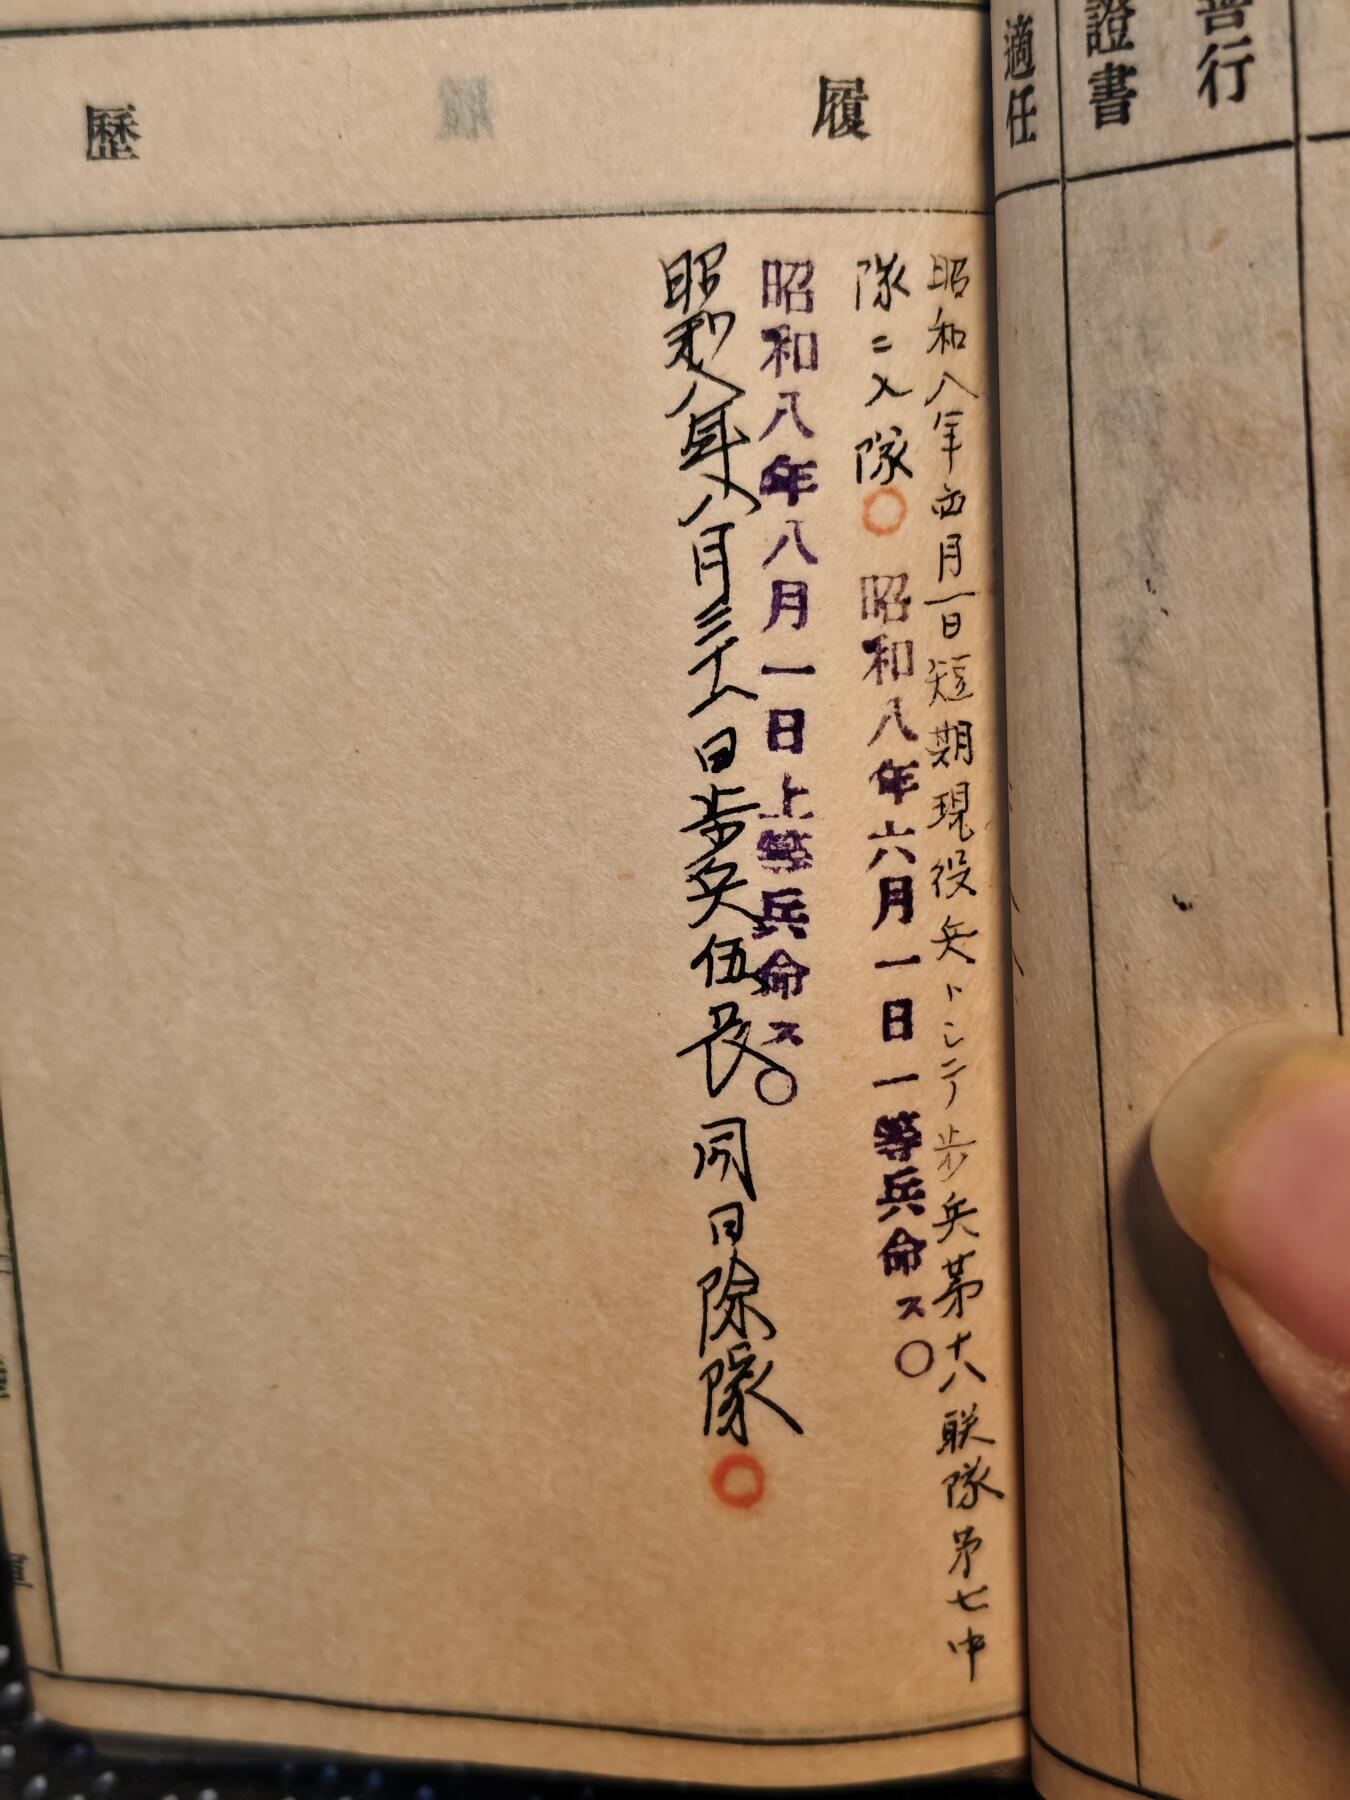 善行
證書
適任
履歷
昭和八年四月一日短期現役兵トシテ歩兵第十八联隊第七中
隊ニ入隊〇 昭和八年六月一日一等兵命ス〇
昭和八年八月一日上等兵命ス〇
昭和八年八月三十一日歩兵伍長同日除隊〇